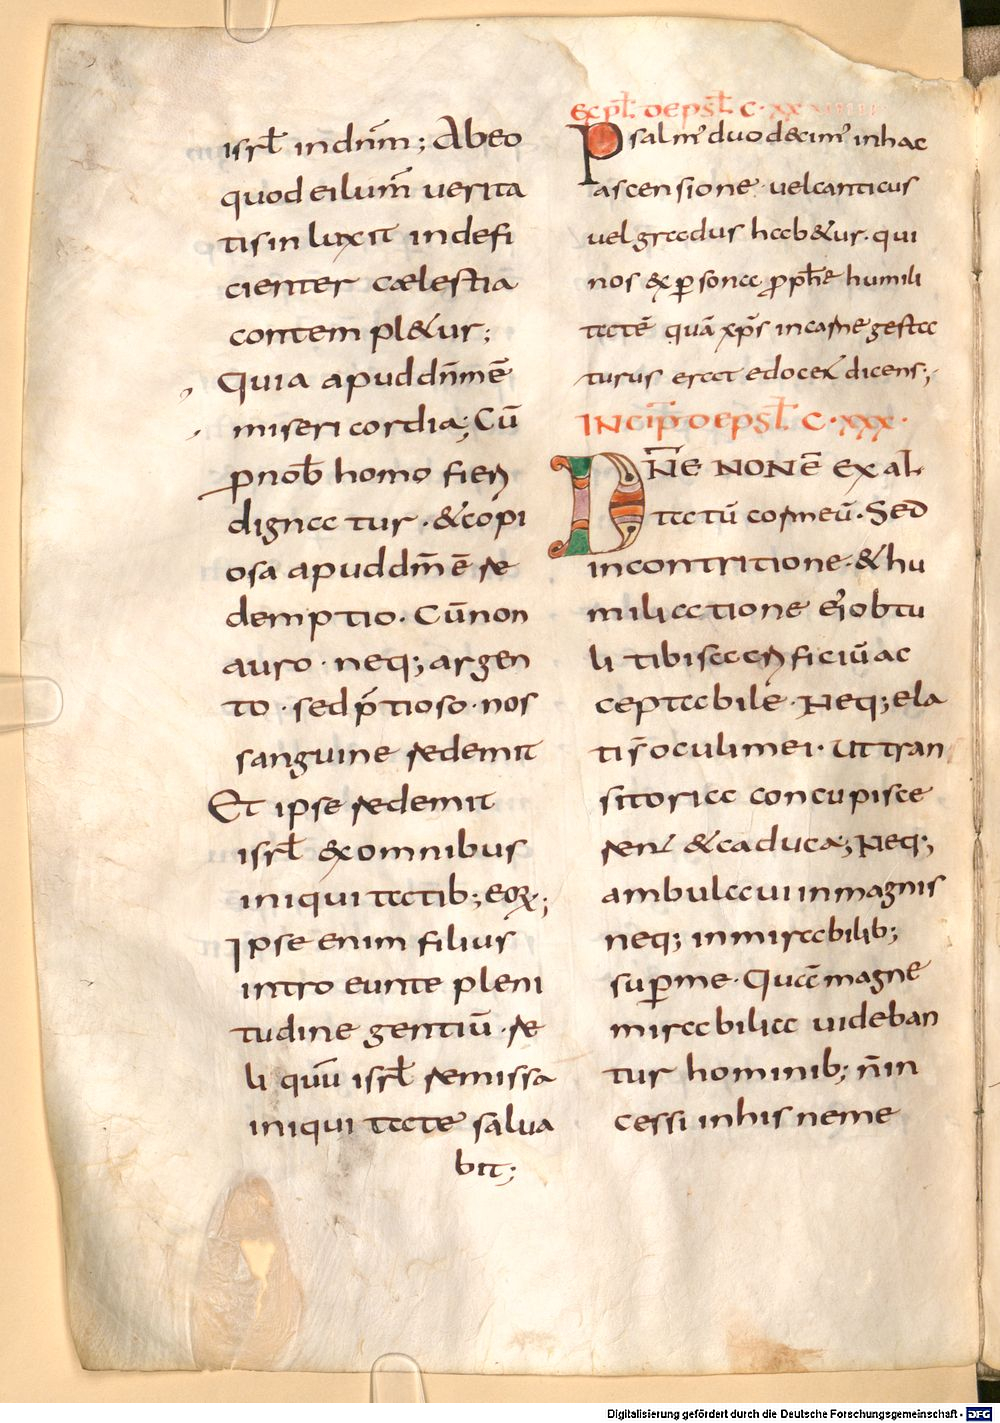 isrł indnm̄; Abeo
quod eilum̄ uerita
tis in luxit indefi
cienter cælestia
contempl&ur;
Quia apuddn̄m ē
misericordia; Cū
p nob̄ homo fieri
dignatur · & copi
osa apuddn̄m ē re
demptio · Cū non
auro · neq; argen
to · sed p̄tioso · nos
sanguine redemit
Et ipse redemit
isrł &xomnibus
iniquitatib; eoꝝ;
Ipse enim filius
intro eunte pleni
tudine gentiū · re
liquū isrł remissa
iniquitate salua
bit;
Expł de psł C·xx
Psalm' duodecim' in hac
ascensione uel canticus
uel gradus hab&ur · qui
nos &x ꝑsona ꝓph̄e humili
tatē quā xp̄s in carne gesta
turus erat edocet dicens;
INCIP̄ DE PSŁ C·XXX·
DN̄E NON Ē EXAL
tatū cor meū · Sed
in contritione · & hu
miliatione ei' obtu
li tibi sacrificiū ac
ceptabile · Neq; ela
ti s̄ oculi mei · Ut tran
sitoria concupisce
rent & caduca; Neq;
ambulaui in magnis
neq; in mirabilib;
suꝑ me · Quā magne
mirabilia uideban
tur hominib; n̄ in
cessi in his ne me
Digitalisierung gefördert durch die Deutsche Forschungsgemeinschaft - DFG